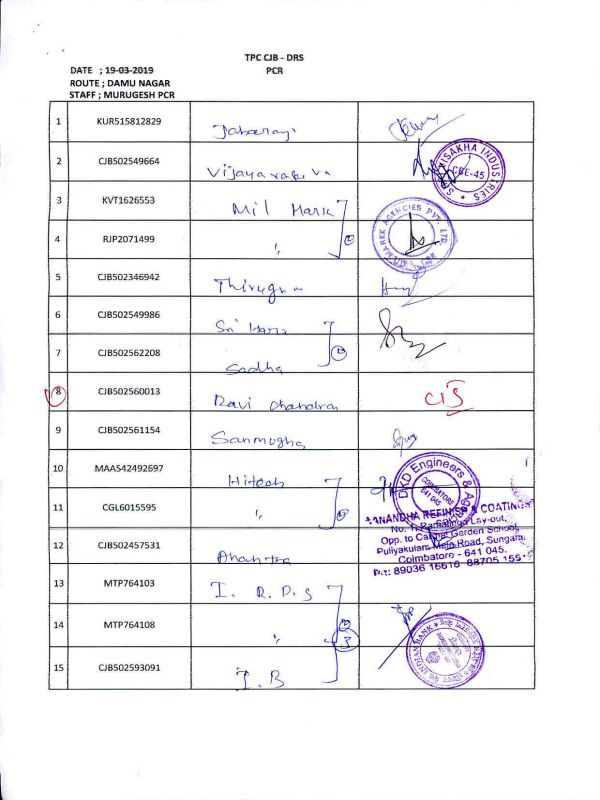 TPC CJB - DRS
DATE ; 19-03-2019 PCR
ROUTE ; DAMU NAGAR
STAFF ; MURUGESH PCR
1 KUR515812829
2 CJB502549664 Vijaya
SRI VISAKHA INDUSTRIES
CBE-45
3 KVT1626553 Mil Mark
MARKK AGENCIES PVT. LTD.
4 RJP2071499 "
5 CJB502346942
6 CJB502549986 Sri Hari
7 CJB502562208 Sadha
8 CJB502560013 Ravi Chandran CIS
9 CJB502561154 Sanmugha
10 MAA542492697 Hitech
DKD Engineers &
COIMBATORE
641 045
11 CGL6015595 "
AANANDHA REFINISH & COATING
No. 1, Ramalinga Lay-out,
Opp. to Garden School,
12 CJB502457531 Anandha
Puliyakulam Main Road, Sungam,
Coimbatore - 641 045.
Ph.: 89036 16616 88705 155
13 MTP764103 I. R. D. S
14 MTP764108 " 3
INDIAN BANK
15 CJB502593091 I. B